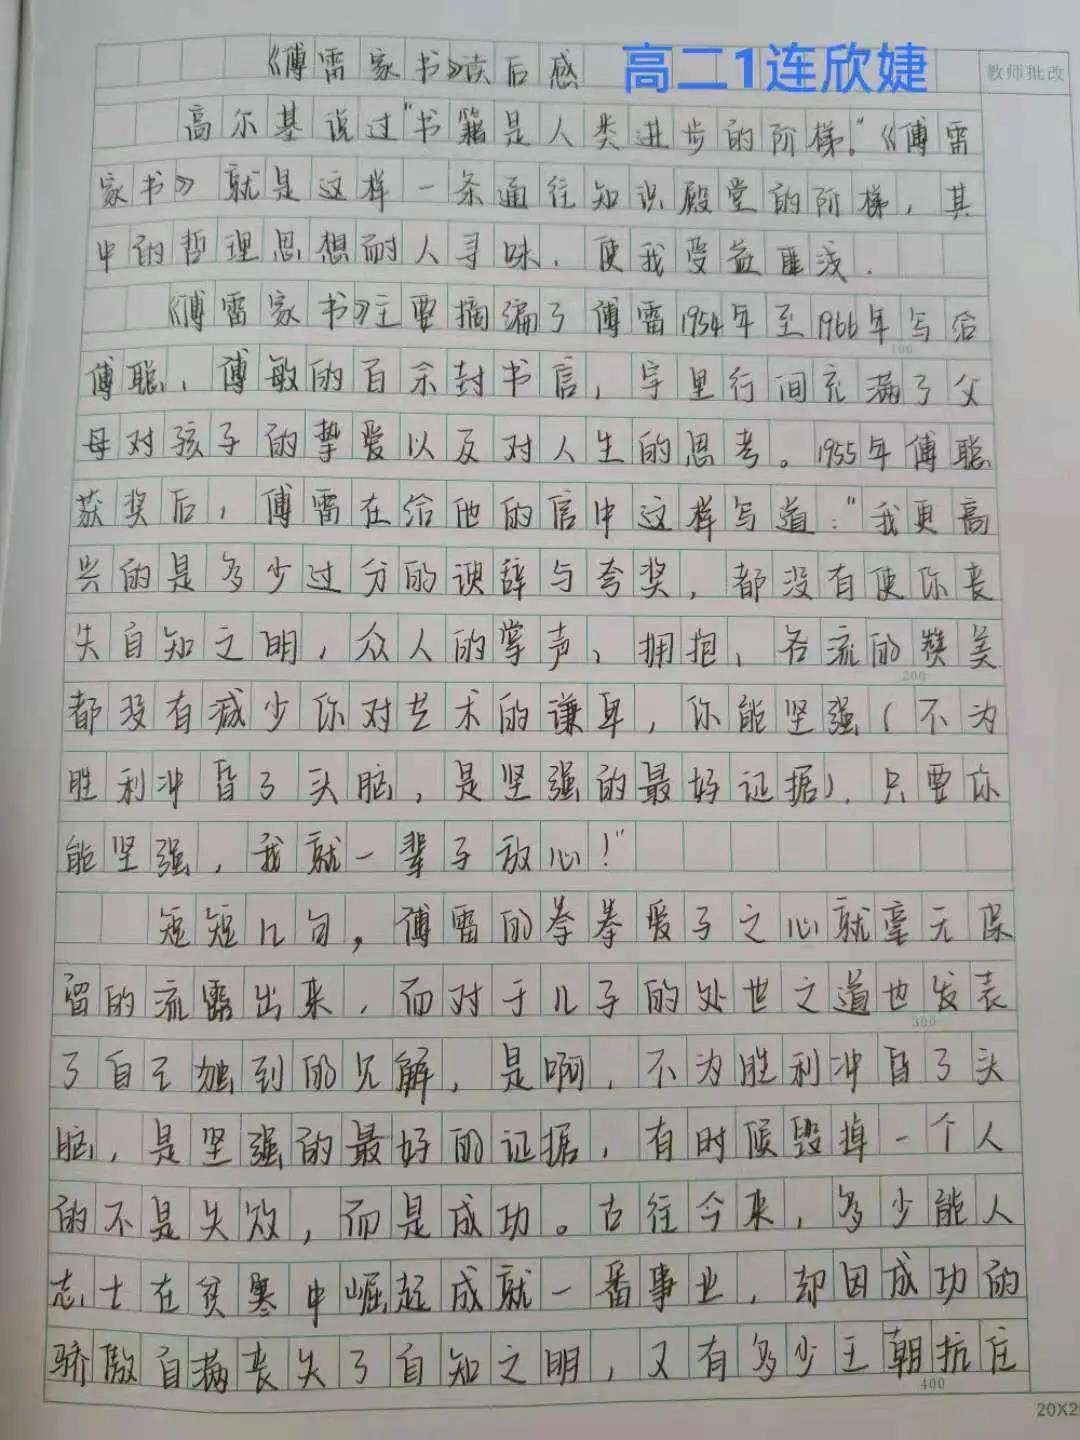 《傅雷家书》读后感 高二1连欣婕
教师批改
高尔基说过"书籍是人类进步的阶梯。"《傅雷
家书》就是这样一条通往知识殿堂的阶梯，其
中的哲理思想耐人寻味，使我受益匪浅.
《傅雷家书》主要摘编了傅雷1954年至1966年写给
100
傅聪、傅敏的百余封书信，字里行间充满了父
母对孩子的挚爱以及对人生的思考。1955年傅聪
获奖后，傅雷在给他的信中这样写道："我更高
兴的是多少过分的谀辞与夸奖，都没有使你丧
失自知之明，众人的掌声、拥抱、名流的赞美
200
都没有减少你对艺术的谦卑，你能坚强(不为
胜利冲昏了头脑，是坚强的最好证据)，只要你
能坚强，我就一辈子放心！"
短短几句，傅雷的拳拳爱子之心就毫无保
留的流露出来，而对于儿子的处世之道也发表
300
了自己独到的见解，是啊，不为胜利冲昏了头
脑，是坚强的最好的证据，有时候毁掉一个人
的不是失败，而是成功。古往今来，多少能人
志士在贫寒中崛起成就一番事业，却因成功的
骄傲自满丧失了自知之明，又有多少王朝抗住
400
20X2